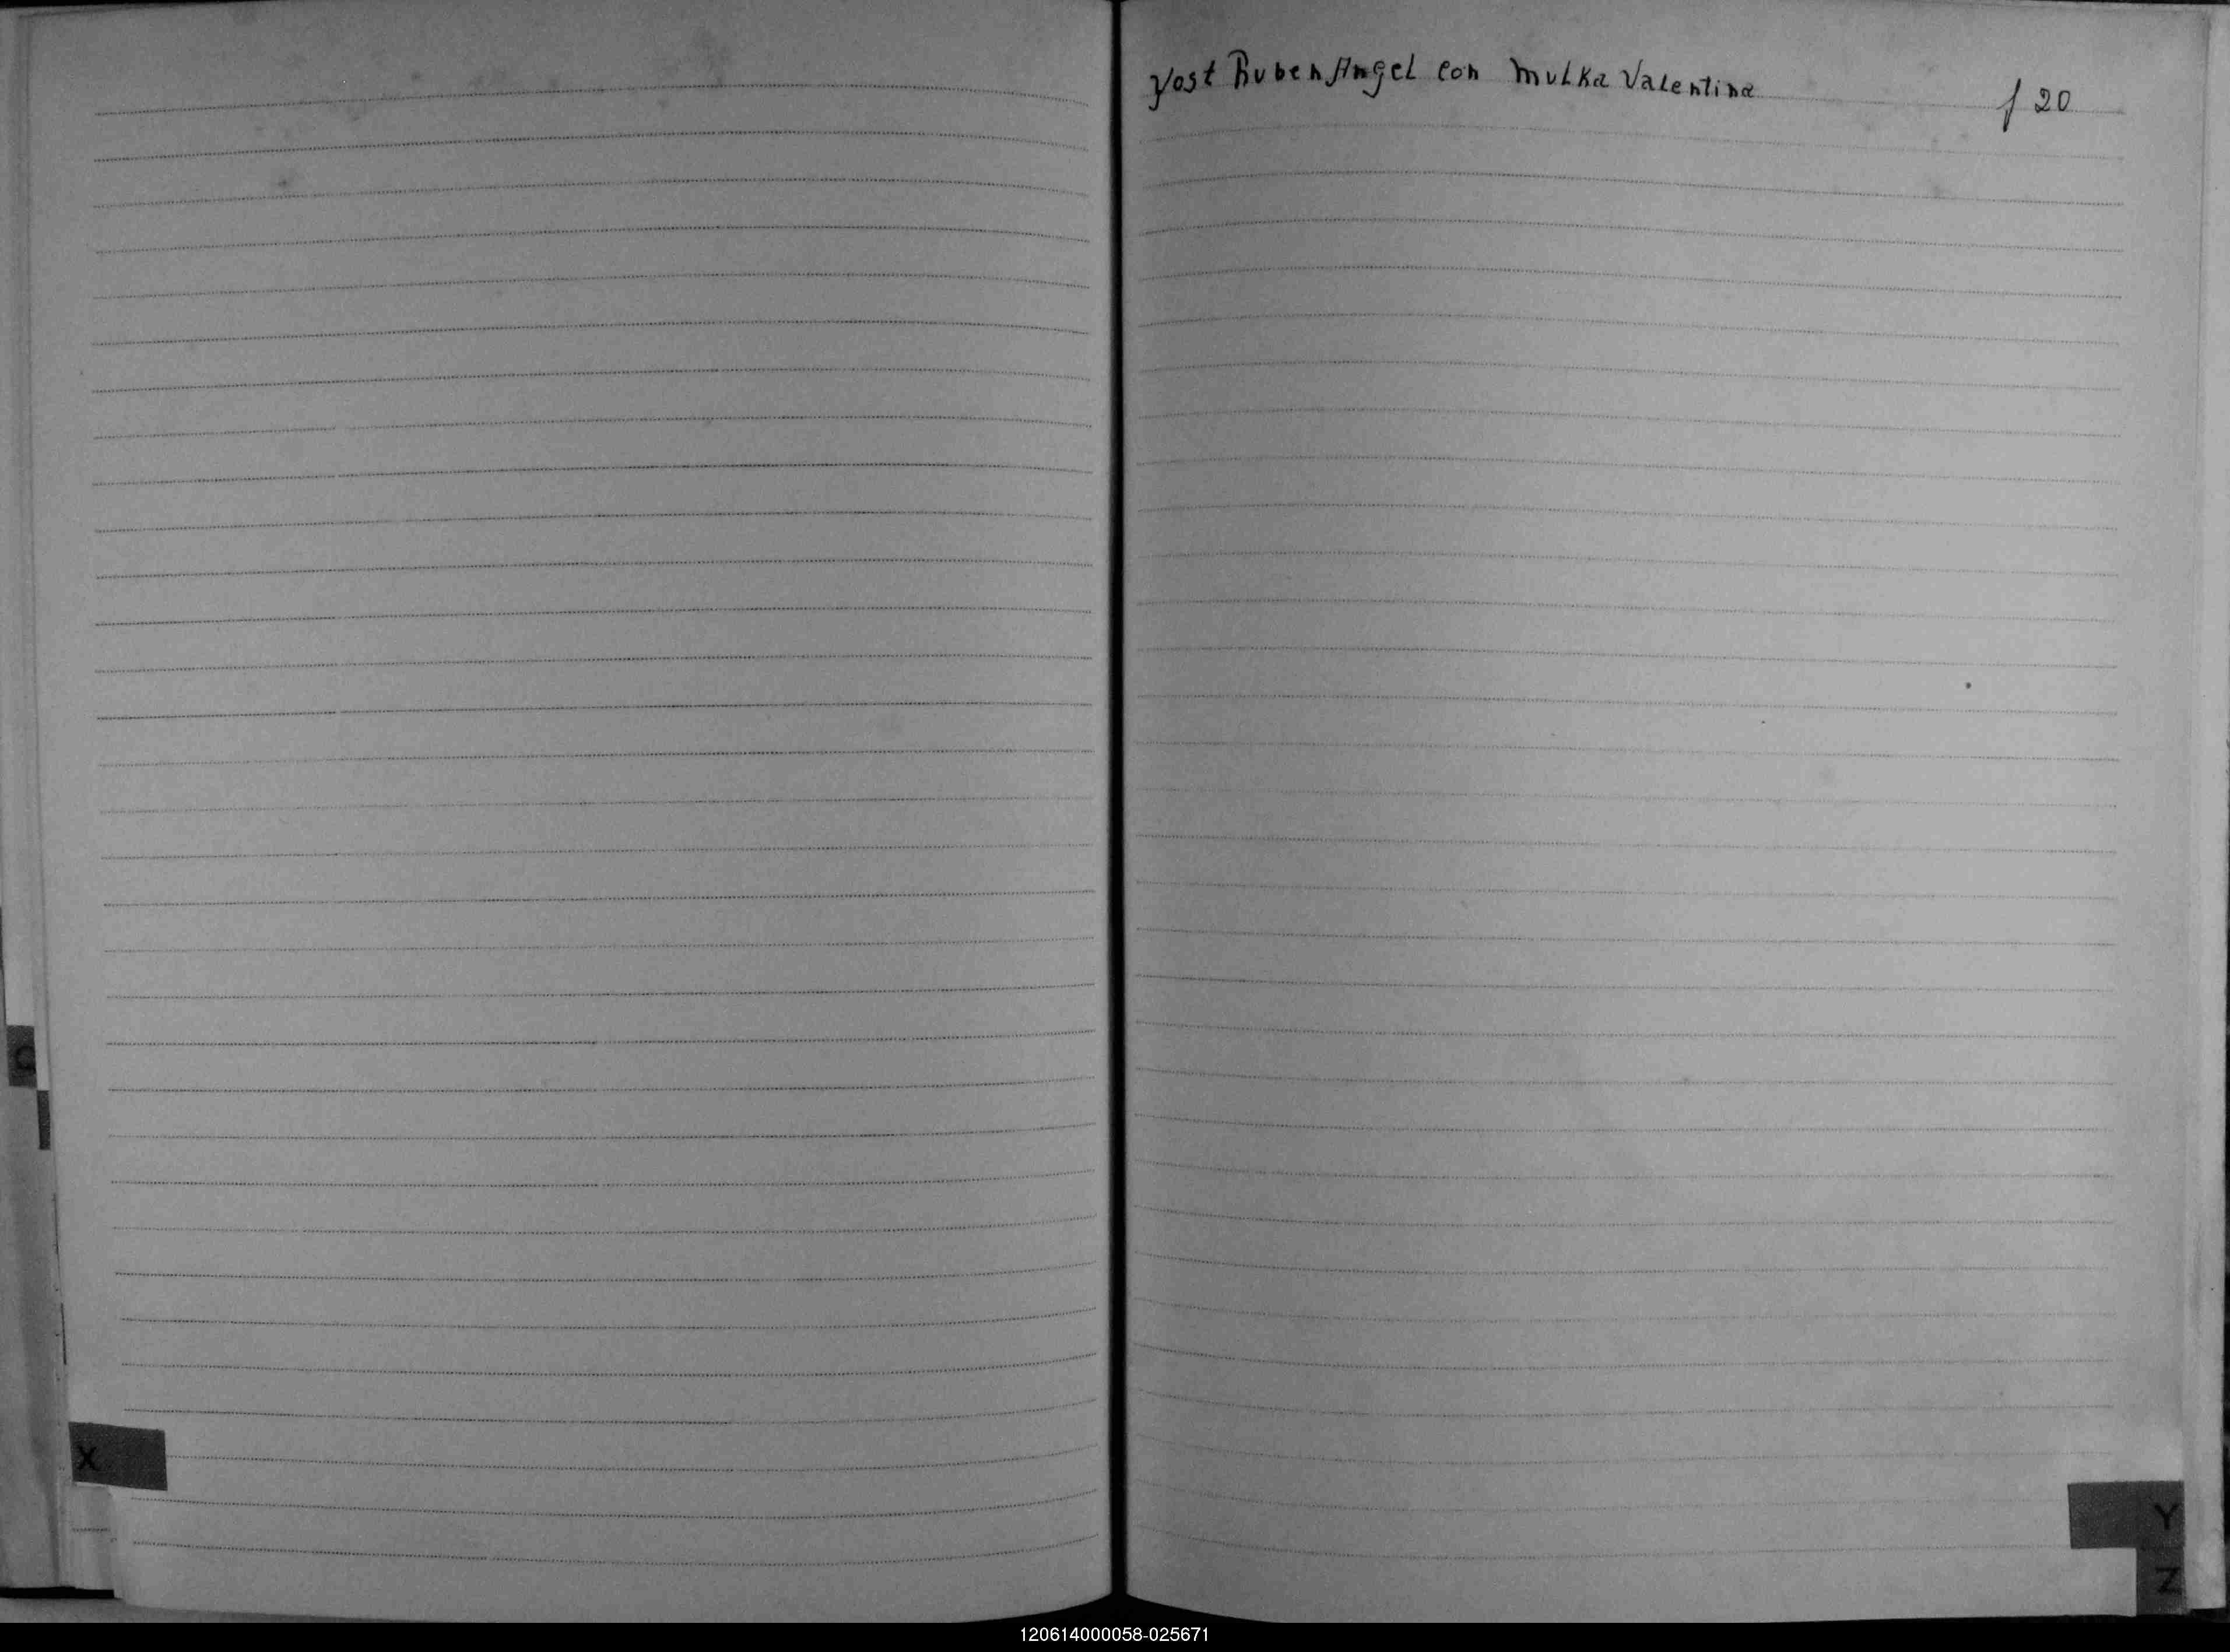 Yost Ruben Angel con Mulka Valentina f 20
X
Y
Z
120614000058-025671